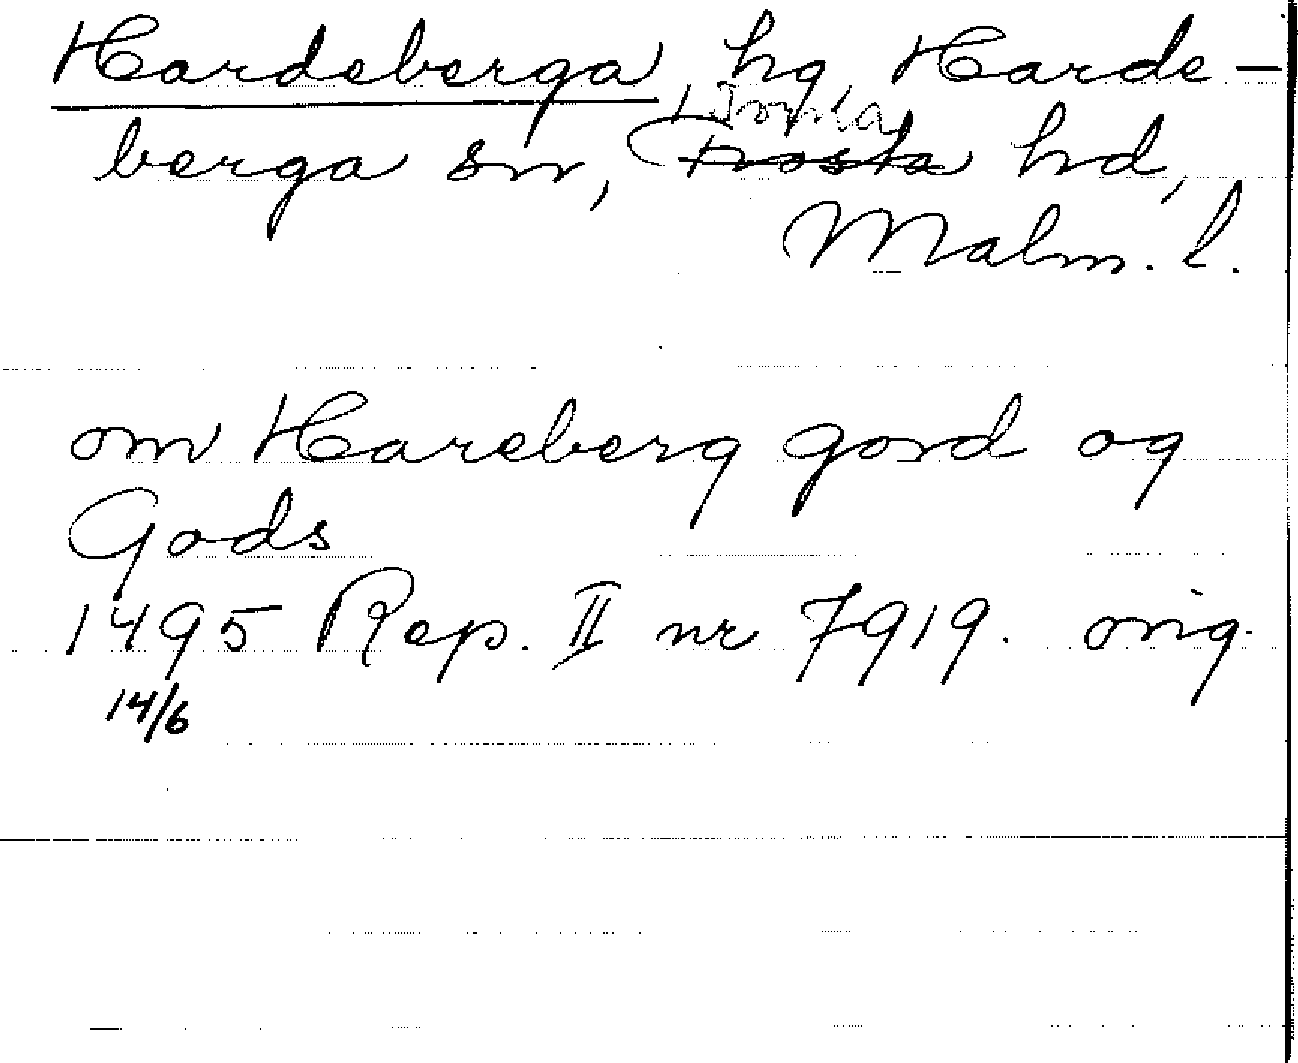 Hardeberga, hg, Harde-
Torna
berga sn, Frosta hd,
Malm. l.
om Hareberg gord og
Gods
1495 Rep. II nr 7919. orig.
14/6